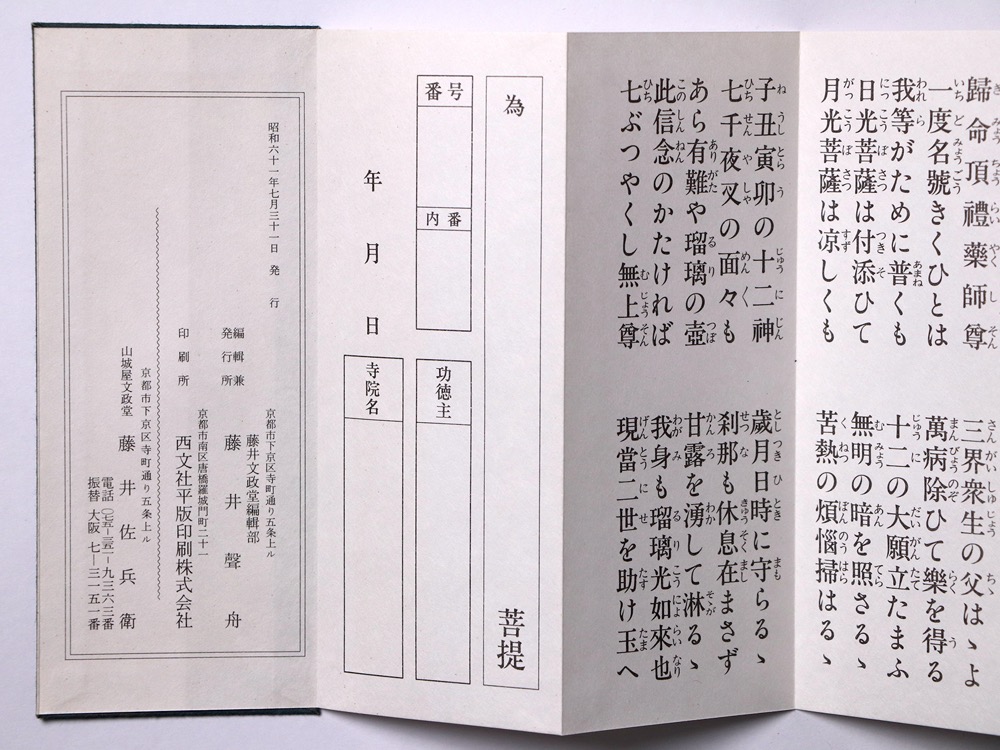 歸命頂禮藥師尊
三界衆生の父はゝよ
一度名號きくひとは
萬病除ひて樂を得る
我等がために普くも
十二の大願立たまふ
日光菩薩は付添ひて
無明の暗を照さるゝ
月光菩薩は凉しくも
苦熱の煩惱掃はるゝ
子丑寅卯の十二神
歲月日時に守らるゝ
七千夜叉の面々も
刹那も休息在まさず
あら有難や瑠璃の壺
甘露を湧して淋るゝ
此信念のかたければ
我身も瑠璃光如來也
七ぶつやくし無上尊
現當二世を助け玉へ
為 菩提
番号
内番
功徳主
年 月 日
寺院名
昭和六十一年七月三十一日 発行
京都市下京区寺町通り五条上ル
藤井文政堂編輯部
編輯兼
発行所 藤井聲舟
京都市南区唐橋羅城門町二十一
印刷所 西文社平版印刷株式会社
京都市下京区寺町通り五条上ル
山城屋文政堂 藤井佐兵衛
電話(〇七五)-三五一-九三六三番
振替 大阪 七-三一五一番